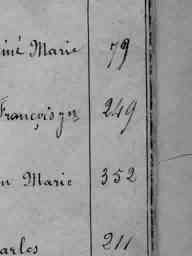 iné Marie 79
François jne 249
n Marie 352
arles 211